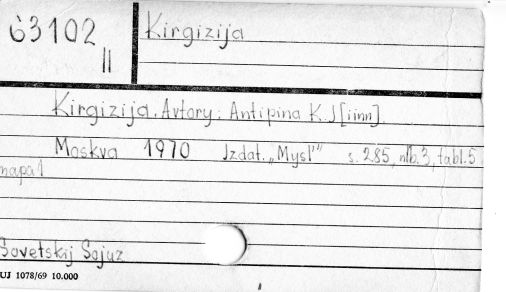 63102 Kirgizija
II
Kirgizija. Avtory: Antipina K. I [i inn].
Moskva 1970 Izdat. „Mysl'" s. 285, nlb. 3, tabl. 5
mapa 1
Sovetskij Sojuz
UJ 1078/69 10.000